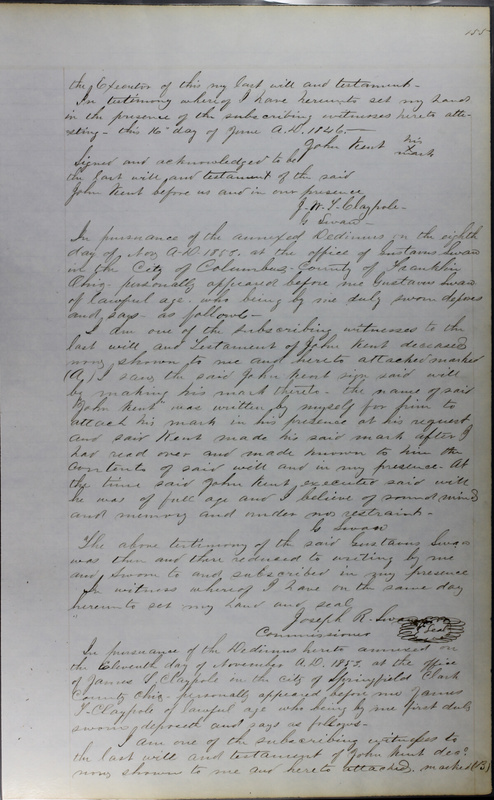 155
the Executor of this my last will and testament -
In testimony whereof I have hereunto set my hand
in the presence of the subscribing witnesses hereto atte-
sting - this 16" day of June A.D. 1846. -
John Kent his
x
mark
Signed and acknowledged to be
the last will and testament of the said
John Kent before us and in our presence
J. W. T. Claypole -
G Swan -
In pursuance of the annexed Dedimus on the eighth
day of Nov A.D. 1853. at the office of Gustavus Swan
in the City of Columbus County of Franklin
Ohio personally appeared before me Gustavus Swan
of lawful age. who being by me duly sworn deposes
and says - as follows -
I am one of the subscribing witnesses to the
last will and testament of John Kent deceased
now shown to me and hereto attached marked
(A,) I saw the said John Kent sign said will
by making his mark thereto - the name of said
"John Kent" was written by myself for him to
attach his mark in his presence at his request
and said Kent made his said mark after I
had read over and made known to him the
contents of said will and in my presence. At
the time said John Kent executed said will
he was of full age and I believe of sound mind
and memory and under no restraint -
G Swan
The above testimony of the said Gustavus Swan
was then and there reduced to writing by me
and sworn to and subscribed in my presence
In witness whereof I have on the same day
hereunto set my hand and seal
Joseph R. Swan
Commissioner Seal
In pursuance of the Dedimus hereto annexed on
the eleventh day of November A.D. 1853. at the office
of James T. Claypole in the city of Springfield Clark
County Ohio - personally appeared before me James
T. Claypole of lawful age who being by me first duly
sworn deposeth and says as follows -
I am one of the subscribing witnesses to
the last will and testament of John Kent decd
now shown to me and hereto attached, marked (B)